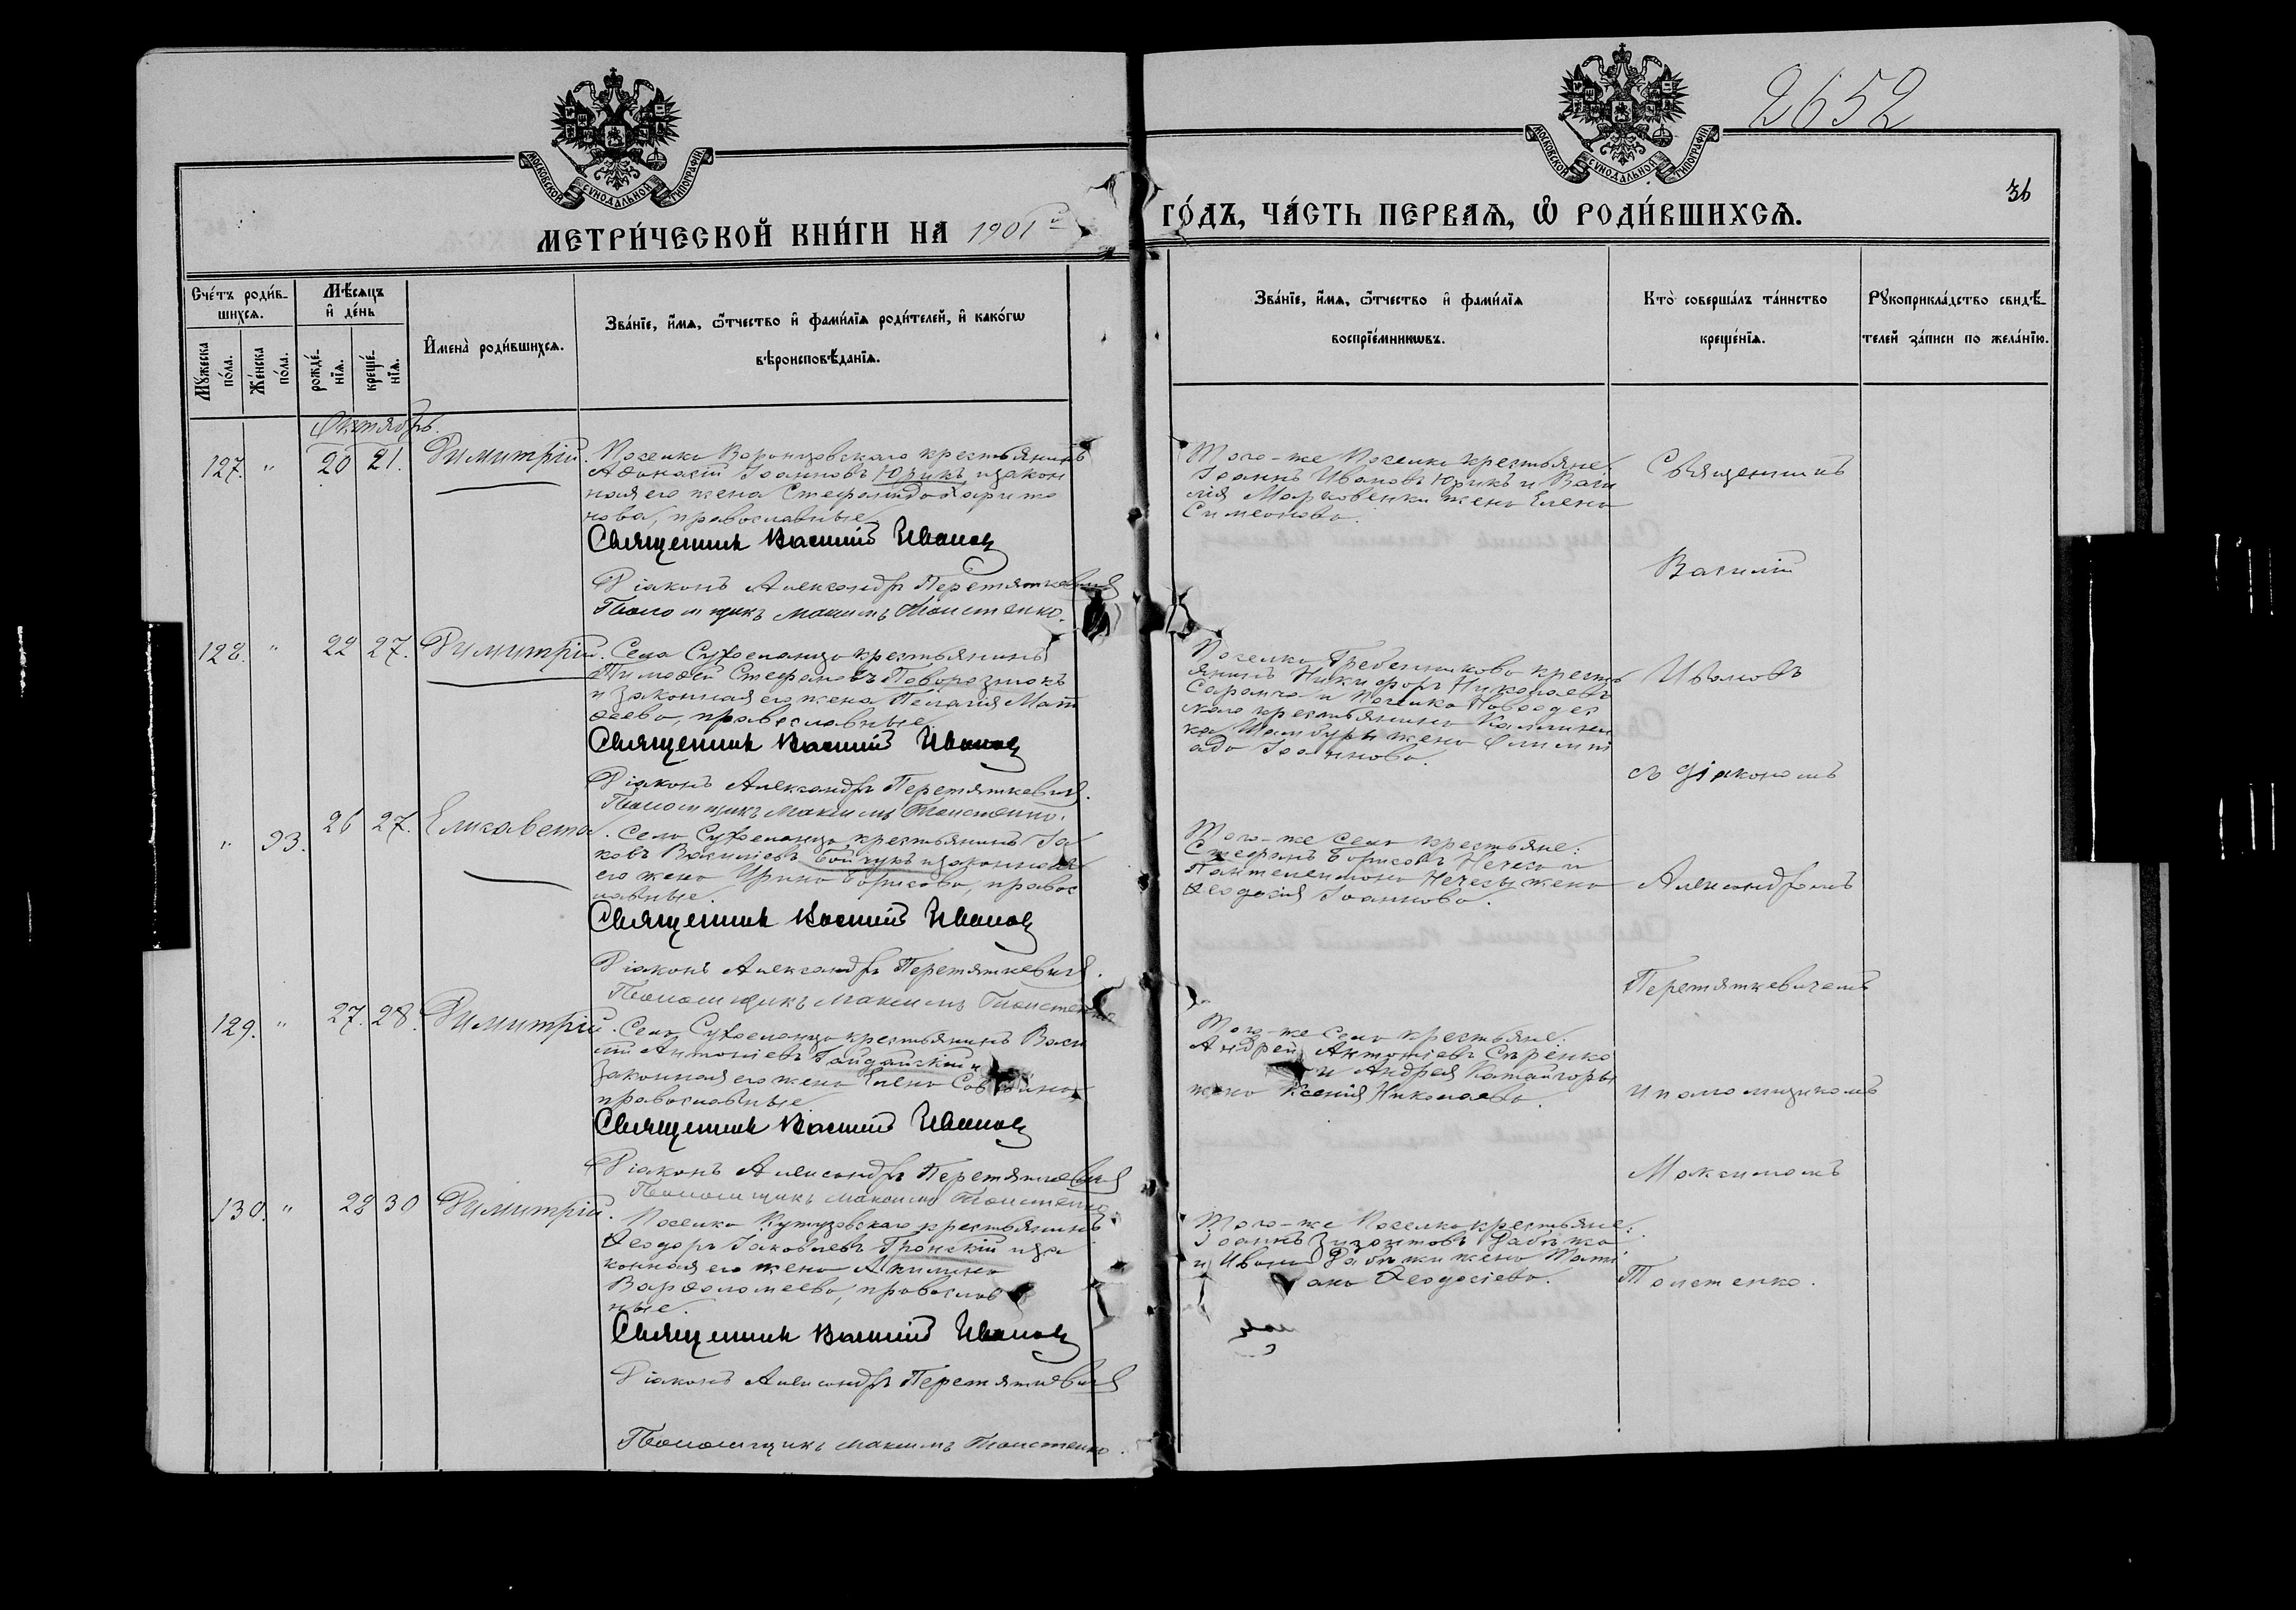 2652
36
МОСКОВСКОЙ СѴНОДАЛЬНОЙ ТИПОГРАФІИ
МОСКОВСКОЙ СѴНОДАЛЬНОЙ ТИПОГРАФІИ
МЕТРИ́ЧЕСКОЙ КНИ́ГИ НА 1901й ГО́ДЪ, ЧА́СТЬ ПЕРВАѦ, Ѿ РОДИ́ВШИХСѦ.
Сче́тъ роди́в-
шихсѧ.
Мꙋ́жеска
по́ла.
Же́нска
по́ла.
Мѣ́сѧцъ
и҆ де́нь
рожде́-
нїѧ.
креще́-
нїѧ.
И҆мена̀ роди́вшихсѧ.
Зва́нїе, и҆́мѧ, ѻ҆́тчество и҆ фами́лїѧ роди́телей, и҆ како́гѡ
вѣроисповѣ́данїѧ.
Зва́нїе, и҆́мѧ, ѻ҆́тчество и҆ фами́лїѧ
воспрїе́мникѡвъ.
Кто̀ соверша́лъ та́инство
креще́нїѧ.
Рꙋкоприкла́дство свидѣ́-
телей за́писи по жела́нїю.
Октябрь.
127. " 20 21. Димитрій.
Поселка Воронцовскаго крестьянинъ
Аѳанасій Іоанновъ Юрикъ и закон
ная его жена Стефанида Харито
нова, православные
Священникъ Василій Ивановъ
Діаконъ Александръ Перетяткевичъ
Псаломщикъ Максимъ Толстенко.
Того-же Поселка крестьяне:
Іоаннъ Ивановъ Юрикъ и Васи
лія Марковенки жена Елена
Симеонова.
128. " 22 27. Димитрій.
Села Суженанца крестьянинъ
Тимоѳей Стефановъ Поворознюкъ
и законная его жена Пелагія Мат
ѳеева, православные
Священникъ Василій Ивановъ
Діаконъ Александръ Перетяткевичъ.
Псаломщикъ Максимъ Толстенко.
Поселка Гребенникова кресть
янинъ Никифоръ Николаевъ
Саранча и Поселка
скаго крестьянина
жена
Іоаннова.
" 93. 26 27. Елисавета.
Села Суженанца крестьянинъ Іа
ковъ Василіевъ Бойчукъ и законная
его жена Ирина Борисова, правос
лавные.
Священникъ Василій Ивановъ
Діаконъ Александръ Перетяткевичъ.
Псаломщикъ Максимъ Толстенко
Того-же Села крестьяне:
Стефанъ Борисовъ Нечеса и
Пантелеимона Нечесы жена
Ѳеодосія Іоаннова.
129. " 27. 28. Димитрій.
Села Суженанца крестьянинъ Васи
лій Антоніевъ Гайдайскій и
законная его жена Елена
православные
Священникъ Василій Ивановъ
Діаконъ Александръ Перетяткевичъ
Псаломщикъ Максимъ Толстенко
Того-же Села крестьяне:
Андрей Антоніевъ Сѣренко
и Андрея Катайгоры
жена Ксенія Николаева.
130. " 28 30 Димитрій.
Поселка Кутузовскаго крестьянинъ
Ѳеодоръ Іаковлевъ Гронскій и за
конная его жена Акилина
Варѳоломеева, православ
ные.
Священникъ Василій Ивановъ
Діаконъ Александръ Перетяткевичъ
Псаломщикъ Максимъ Толстенко.
Того-же Поселка крестьяне:
Іоаннъ Рабѣжа
и Ивана Рабѣжи жена Тать
ана Ѳеодосіева.
Священникъ
Василій
Ивановъ
съ діакономъ
Александромъ
Перетяткевичемъ
и псаломщикомъ
Максимомъ
Толстенко.